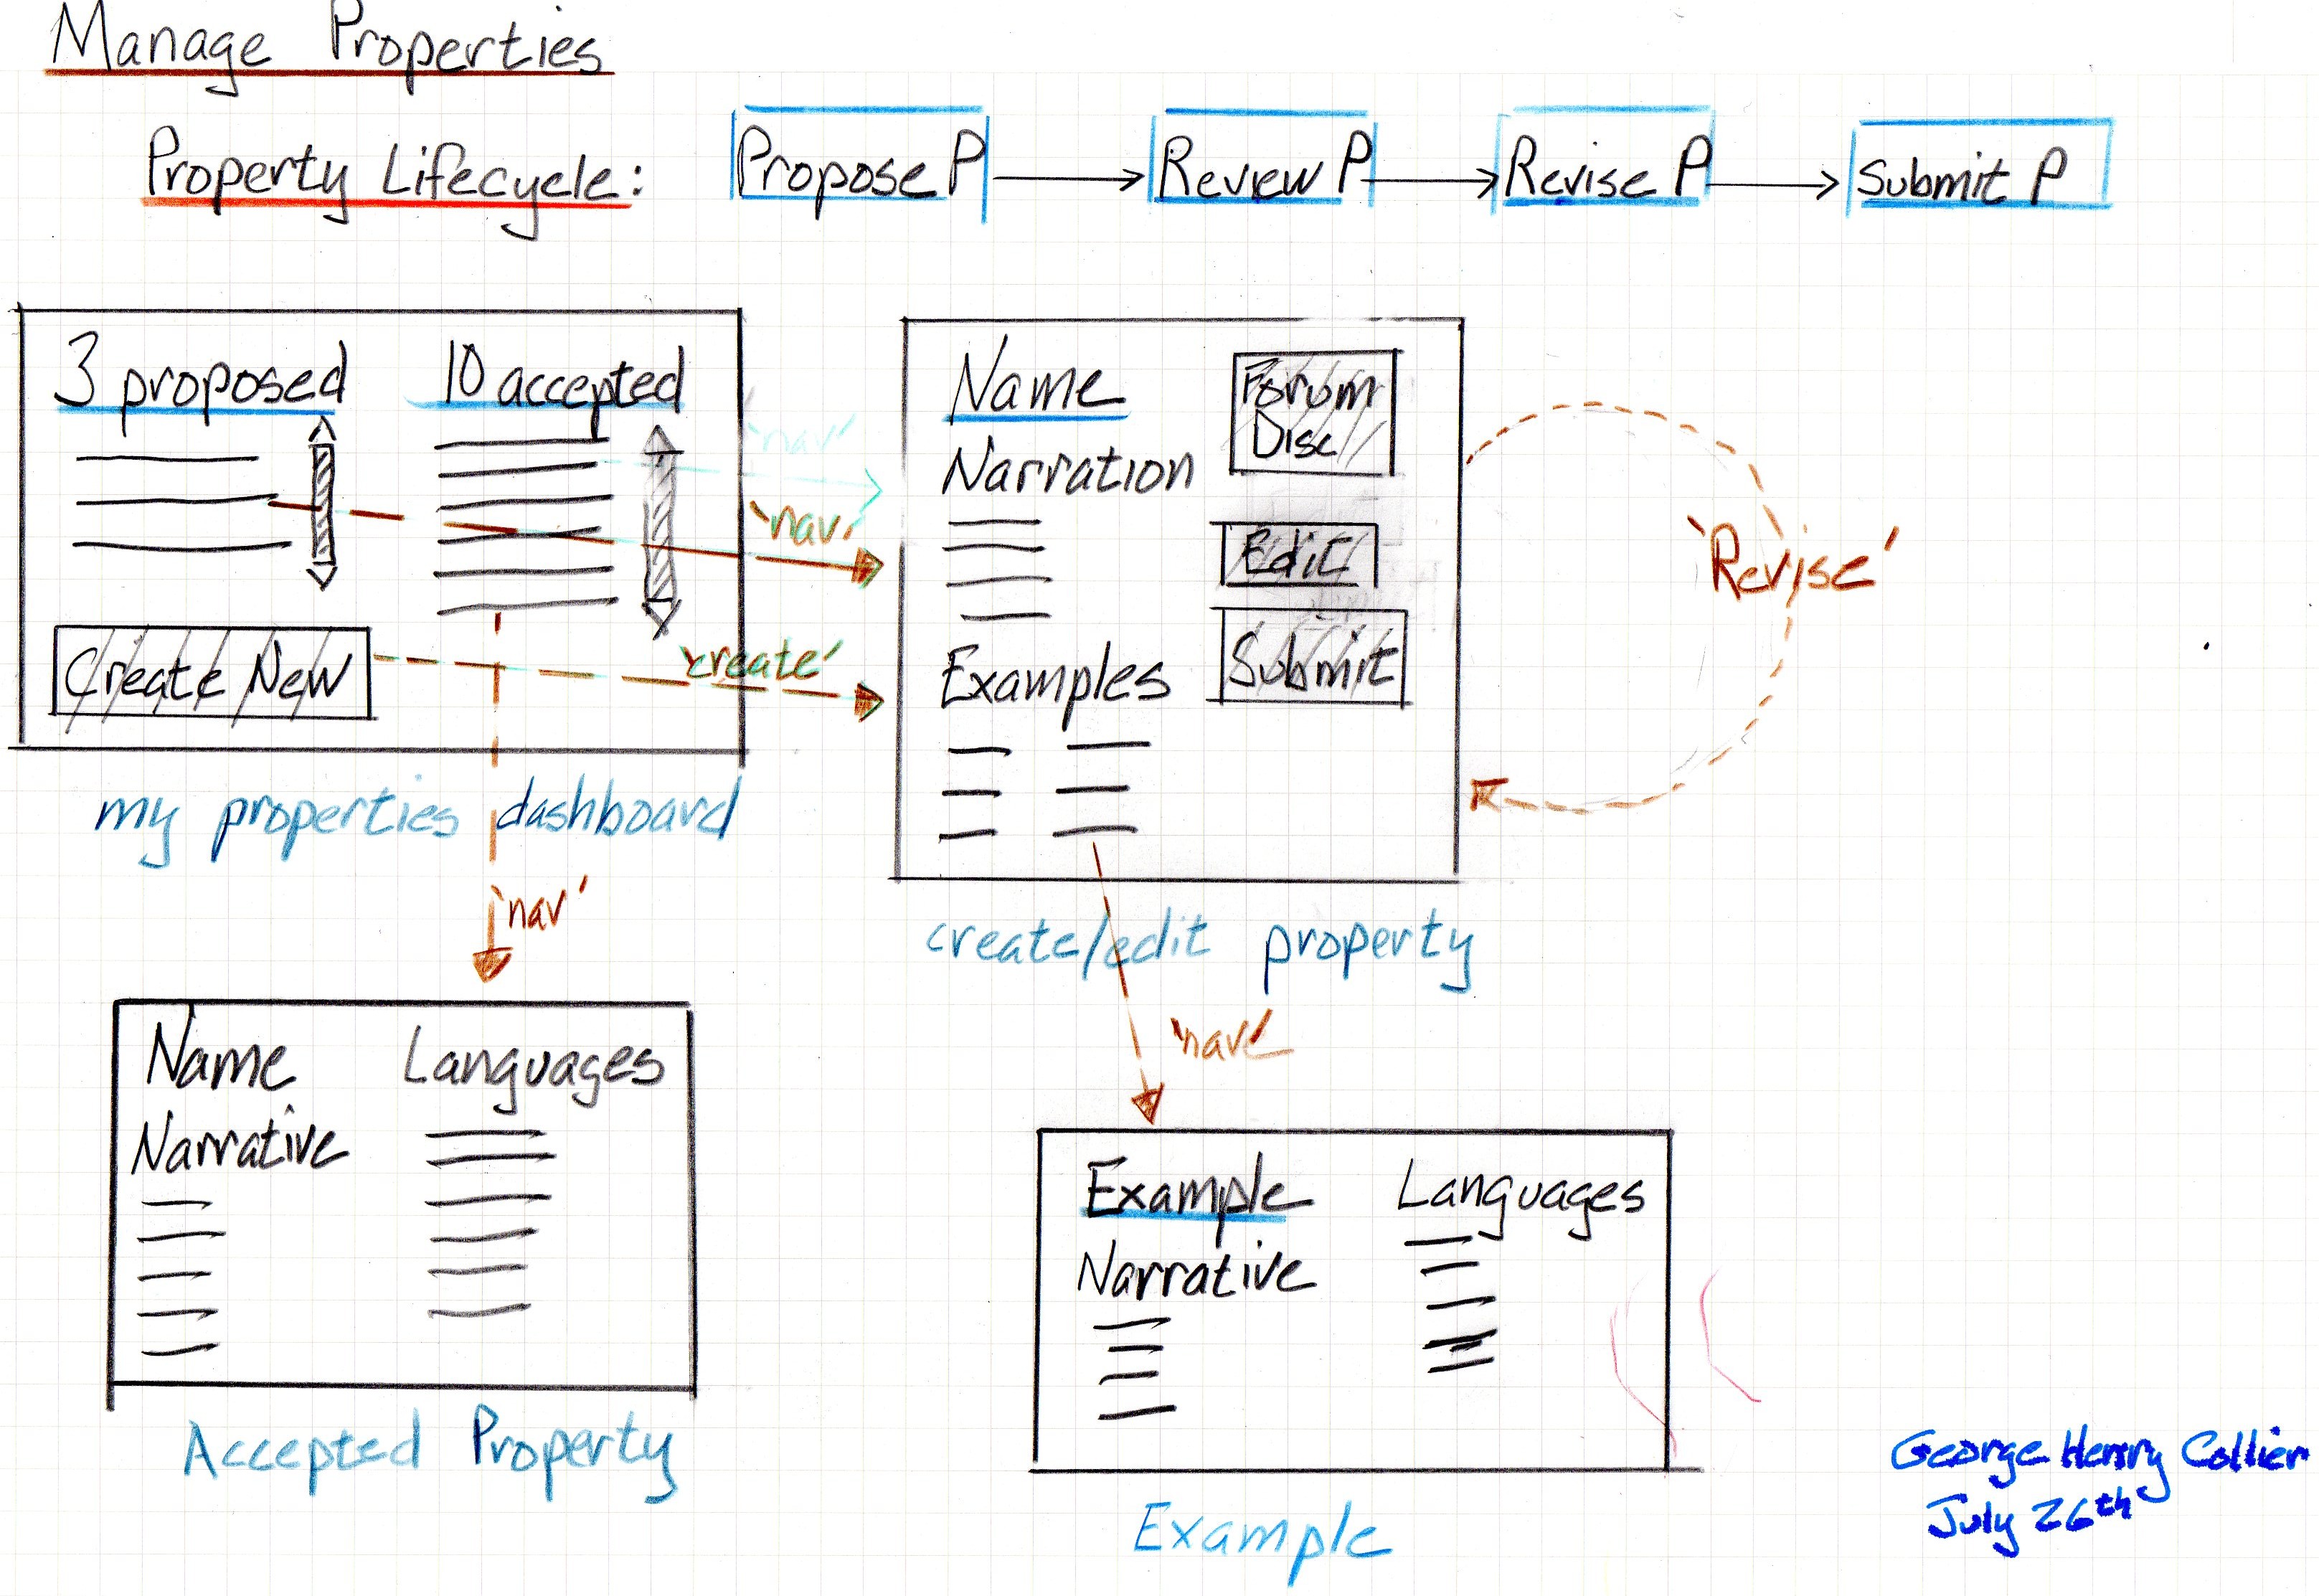 Manage Properties
Property Lifecycle:
Propose P
Review P
Revise P
Submit P
3 proposed
10 accepted
Create New
my properties dashboard
'nav'
'nav'
'create'
'nav'
Name
Narration
Examples
Forum
Disc
Edit
Submit
'Revise'
create/edit property
'nav'
Name
Narrative
Languages
Accepted Property
Example
Narrative
Languages
Example
George Henry Collier
July 26th